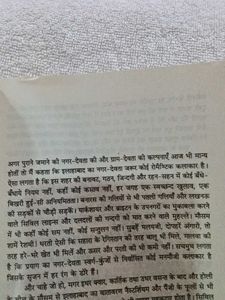 अगर पुराने जमाने की नगर-देवता की और ग्राम-देवता की कल्पनाएँ आज भी मान्य
होतीं तो मैं कहता कि इलाहाबाद का नगर-देवता जरूर कोई रोमैण्टिक कलाकार है।
ऐसा लगता है कि इस शहर की बनावट, गठन, जिन्दगी और रहन-सहन में कोई बँधे-
बँधाये नियम नहीं, कहीं कोई कसाव नहीं, हर जगह एक स्वच्छन्द खुलाव, एक
बिखरी हुई-सी अनियमितता। बनारस की गलियों से भी पतली गलियाँ और लखनऊ
की सड़कों से चौड़ी सड़कें। यार्कशायर और ब्राइटन के उपनगरों का मुकाबला करने
वाले सिविल लाइन्स और दलदलों की गन्दगी को मात करने वाले मुहल्ले। मौसम
में भी कहीं कोई सम नहीं, कोई सन्तुलन नहीं। सुबहें मलयजी, दोपहरें अंगारी, तो
शामें रेशमी। धरती ऐसी कि सहारा के रेगिस्तान की तरह बालू भी मिले, मालवा की
तरह हरे-भरे खेत भी मिलें और ऊसर और परती की भी कमी नहीं। सचमुच लगता
है कि प्रयाग का नगर-देवता स्वर्ग-कुंजों से निर्वासित कोई मनमौजी कलाकार है
जिसके सृजन में हर रंग के डोरे हैं।
और चाहे जो हो, मगर इधर क्वार, कार्तिक तथा उधर वसन्त के बाद और होली
के बीच के मौसम से इलाहाबाद का वातावरण नैस्टर्शियम और पैंजी के फूलों से भी